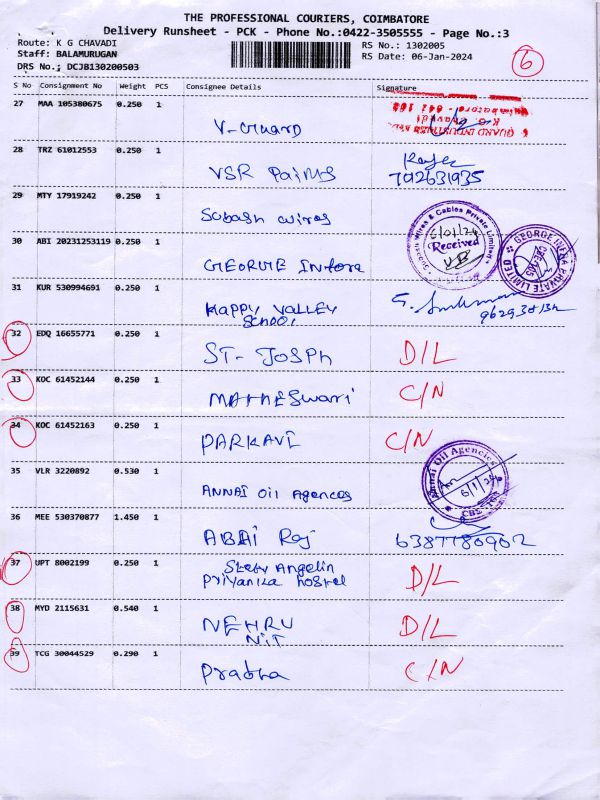 THE PROFESSIONAL COURIERS, COIMBATORE
Delivery Runsheet - PCK - Phone No.:0422-3505555 - Page No.:3
Route: K G CHAVADI RS No.: 1302005
Staff: BALAMURUGAN RS Date: 06-Jan-2024
DRS No.: DCJB130200503
6
S No Consignment No Weight PCS Consignee Details Signature
27 MAA 105380675 0.250 1 V-GUARD
28 TRZ 61012553 0.250 1 VSR Paints
29 MTY 17919242 0.250 1 Subash wires 6/01/24 Received
30 ABI 20231253119 0.250 1 GEORGE Infra
31 KUR 530994691 0.250 1 HAPPY VALLEY
SCHOOL
32 EDQ 16655771 0.250 1 ST- JOSPH D/L
33 KOC 61452144 0.250 1 MAHHESWARI C/N
34 KOC 61452163 0.250 1 PARKAVI C/N
35 VLR 3220892 0.530 1 ANNAI Oil Agences Annai Oil Agencies 6/1/24
36 MEE 530370877 1.450 1 ABAI Raj 6387780902
37 UPT 8002199 0.250 1 Angelin
Priyanka hostel D/L
38 MYD 2115631 0.540 1 NEHRU
NIT D/L
39 TCG 30044529 0.290 1 Prabha C/N